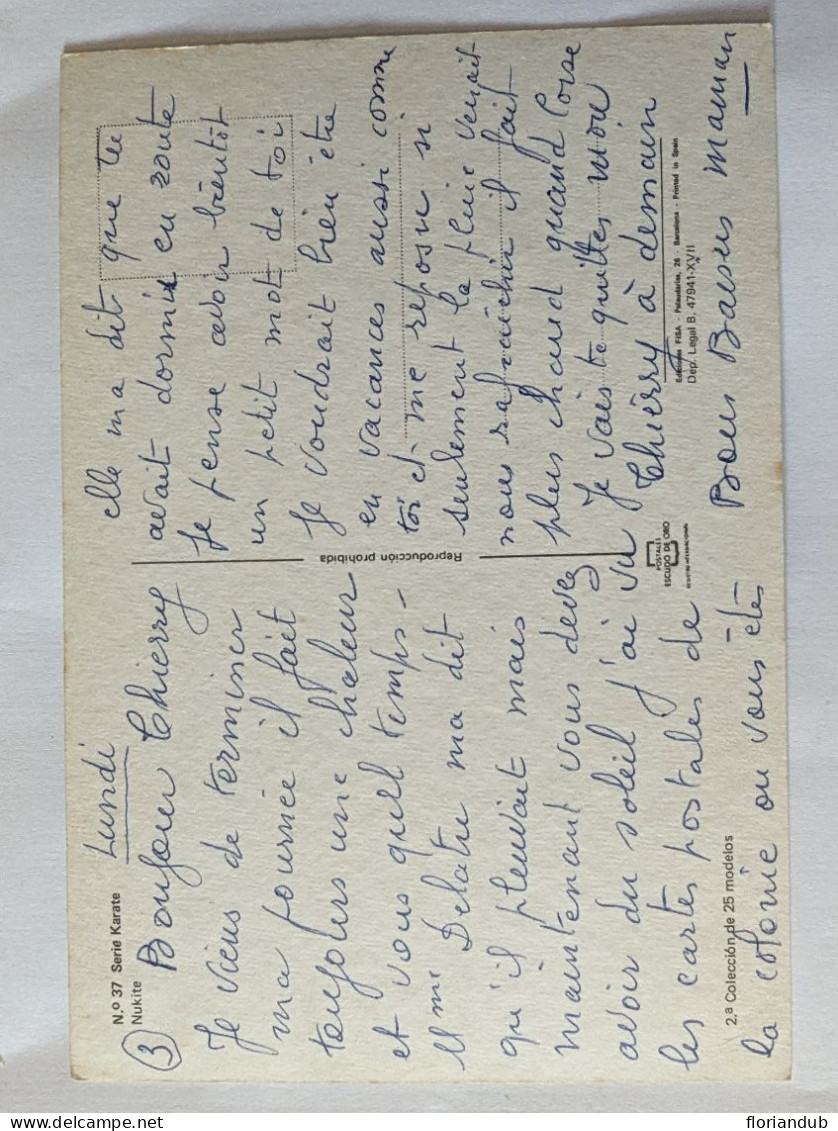 N.º 37 Serie Karate
Nukite
Lundi
3
Bonjour Thierry
Je viens de terminer
ma journée il fait
toujours une chaleur
et vous quell temps -
Mme Delatre ma dit
qu'il pleuvait mais
maintenant vous devez
avoir du soleil j'ai vu
les cartes postales de
2.ª Colección de 25 modelos
la colonie ou vous êtes
elle ma dit que tu
avait dormis en route
Je pense avoir bientôt
un petit mot de toi
Je voudrait bien être
en vacances aussi comme
toi et me reposer si
seulement la pluie venait
nous rafraichir il fait
plus chaud quand Corse
Je vais te quittes mon
Thierry à demain
Bons Baisers maman
Reproducción prohibida
POSTALES
ESCUDO DE ORO
Ediciones FISA - Palaudarias, 26 - Barcelona - Printed in Spain
Dep. Legal B. 47941-XVII
floriandub